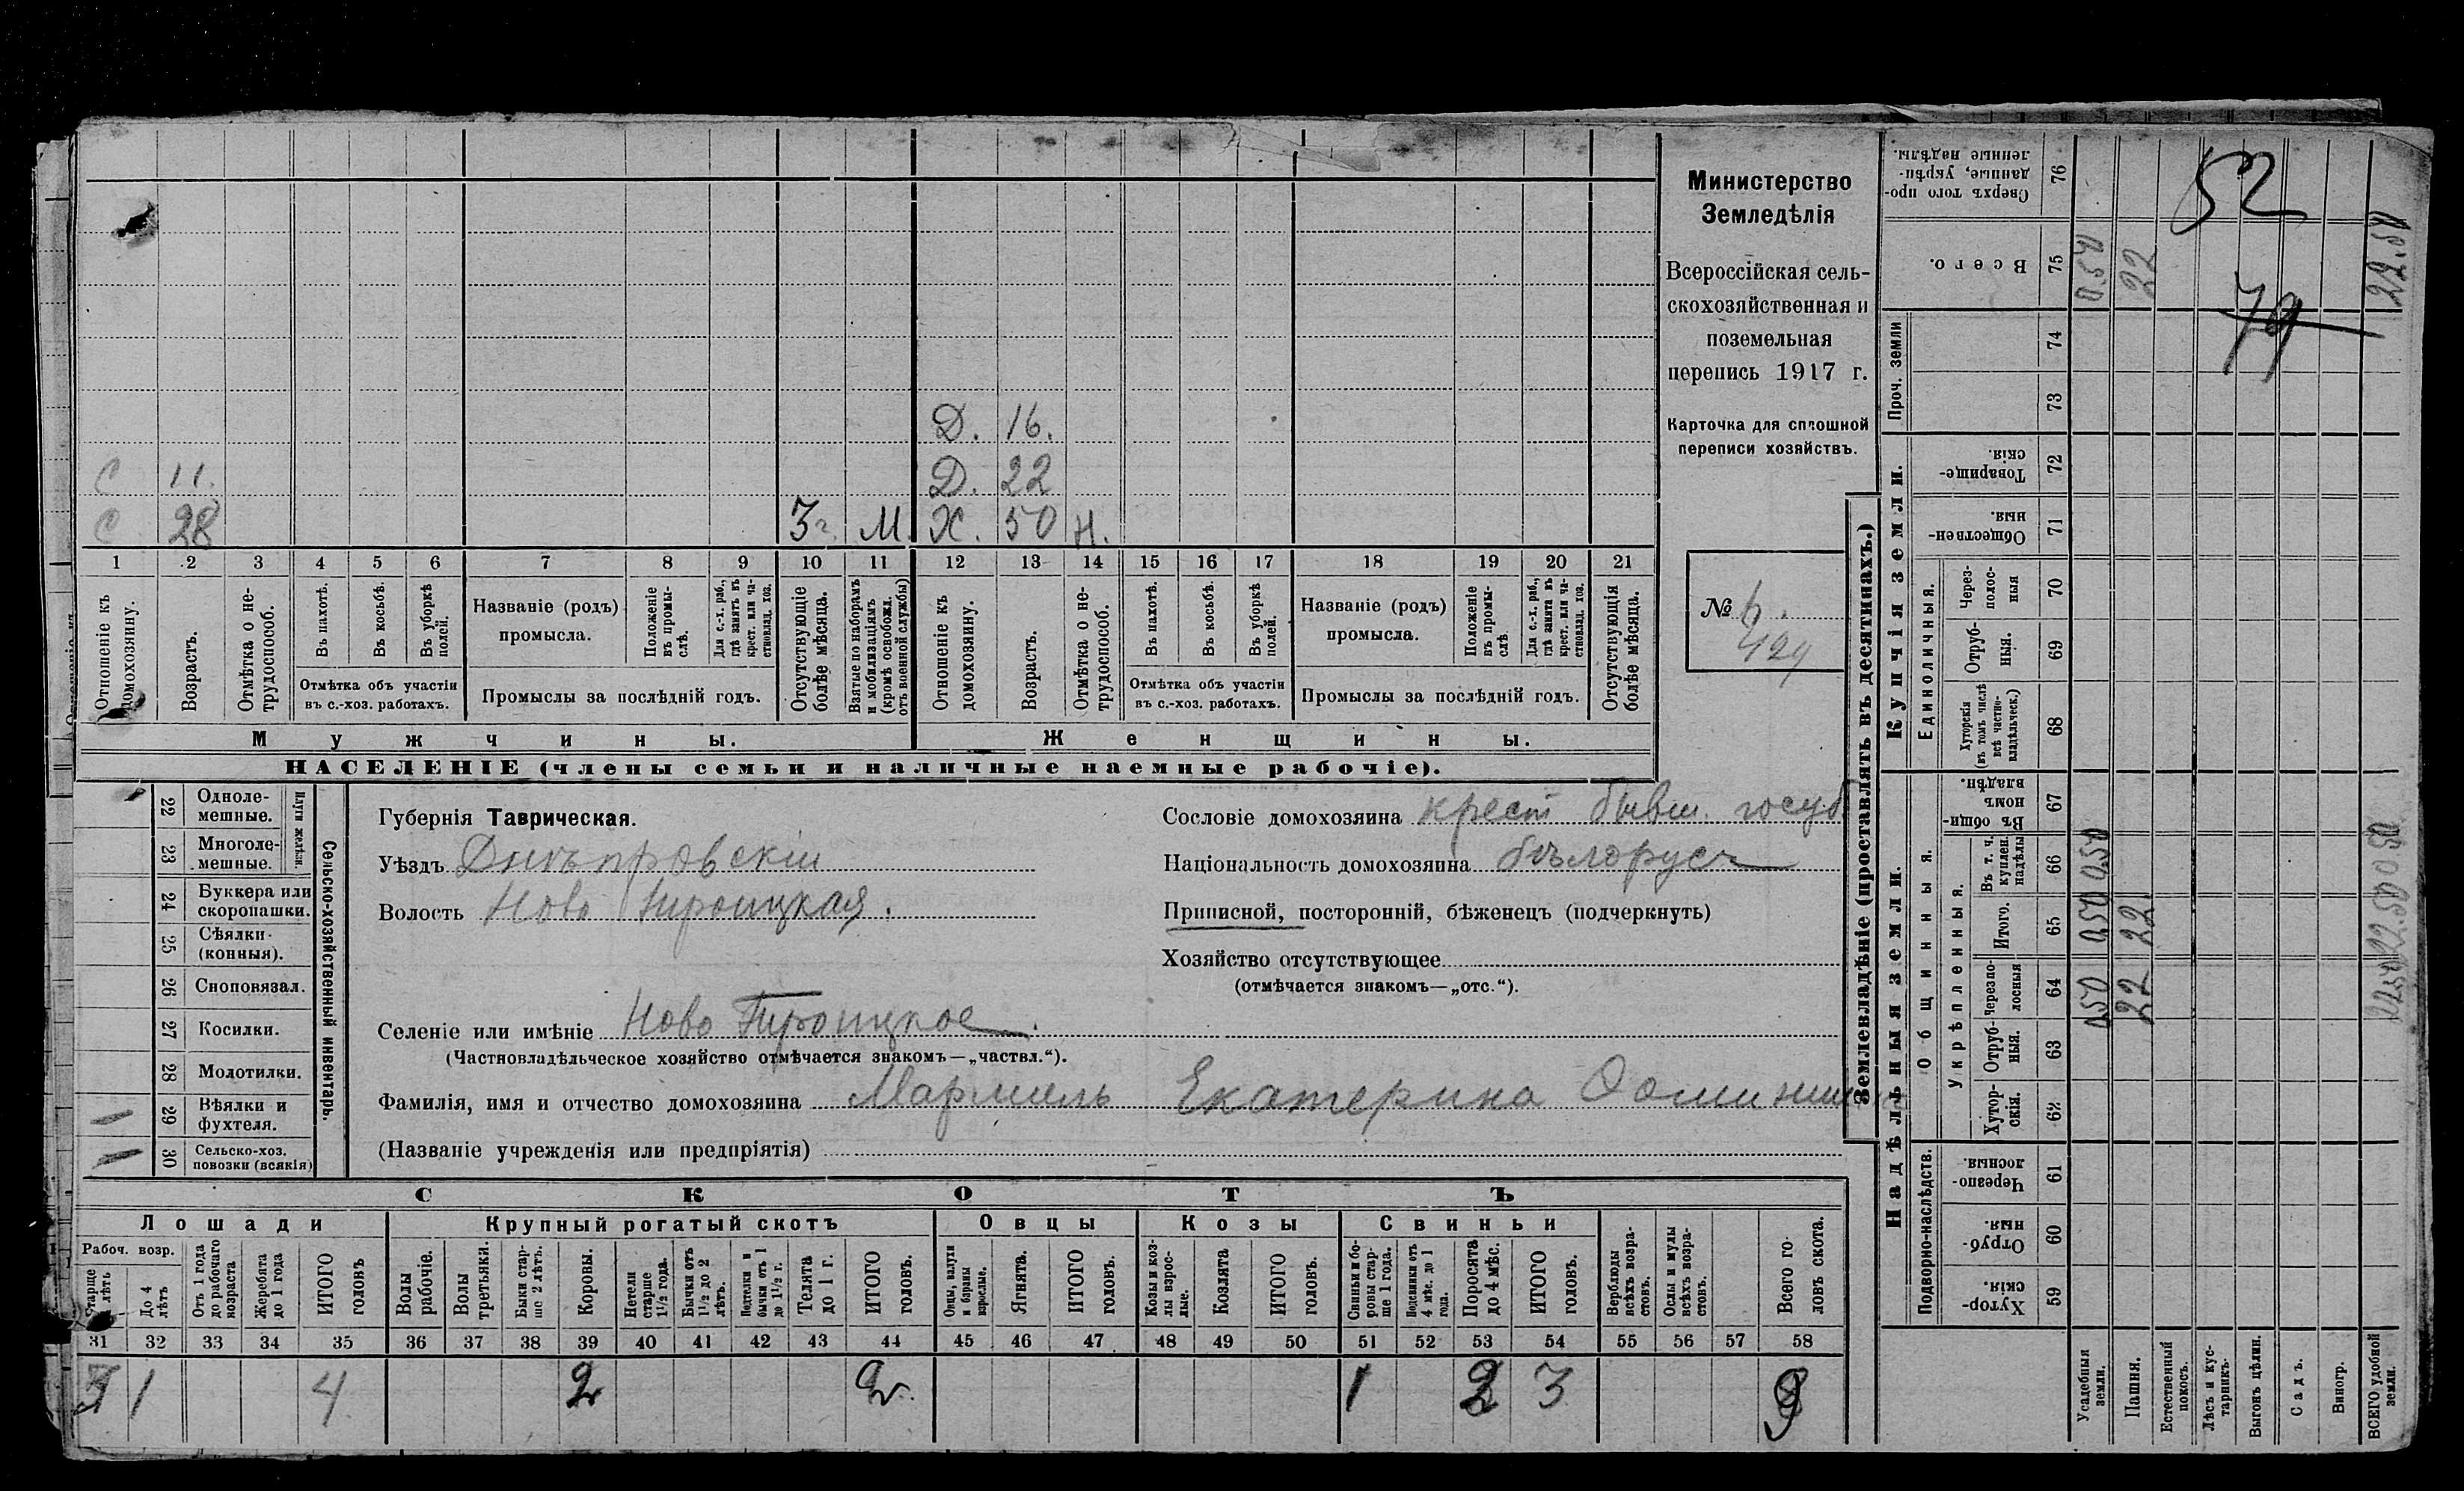 Д. 16.
С 11. Д. 22
С 28 3 г. М. Х. 50 Н.
1 2 3 4 5 6 7 8 9 10 11 12 13 14 15 16 17 18 19 20 21
Отношеніе къ домохозяину.
Возрастъ.
Отмѣтка о не-
трудоспособ.
Въ пахотѣ.
Въ косьбѣ.
Въ уборкѣ
полей.
Отмѣтка объ участіи
въ с.-хоз. работахъ.
Названіе (родъ)
промысла.
Положеніе
въ промы-
слѣ.
Для с.-х. раб.,
гдѣ занятъ въ
крест. или ча-
стновлад. хоз.
Промыслы за послѣдній годъ.
Отсутствующіе
болѣе мѣсяца.
Взятые по наборамъ
и мобилизаціямъ
(кромѣ освобожд.
отъ военной службы)
Отношеніе къ
домохозяину.
Возрастъ.
Отмѣтка о не-
трудоспособ.
Въ пахотѣ.
Въ косьбѣ.
Въ уборкѣ
полей.
Отмѣтка объ участіи
въ с.-хоз. работахъ.
Названіе (родъ)
промысла.
Положеніе
въ промы-
слѣ.
Для с.-х. раб.,
гдѣ занята въ
крест. или ча-
стновлад. хоз.
Промыслы за послѣдній годъ.
Отсутствующія
болѣе мѣсяца.
Мужчины.
Женщины.
НАСЕЛЕНІЕ (члены семьи и наличные наемные рабочіе).
Министерство
Земледѣлія
Всероссійская сель-
скохозяйственная и
поземельная
перепись 1917 г.
Карточка для сплошной
переписи хозяйствъ.
№
429
Сельско-хозяйственный инвентарь.
Плуги желѣзн.
22 Одноле-
мешные.
23 Многоле-
мешные.
24 Буккера или
скоропашки.
25 Сѣялки
(конныя).
26 Сноповязал.
27 Косилки.
28 Молотилки.
29 Вѣялки и
фухтеля.
30 Сельско-хоз.
повозки (всякія)
Губернія Таврическая.
Уѣздъ Днѣпровскій
Волость Ново Троицкая.
Сословіе домохозяина крест бывш. госуд.
Національность домохозяина бѣлорусъ
Приписной, посторонній, бѣженецъ (подчеркнуть)
Хозяйство отсутствующее
(отмѣчается знакомъ—„отс.“).
Селеніе или имѣніе Ново Троицкое.
(Частновладѣльческое хозяйство отмѣчается знакомъ—„частвл.“).
Фамилія, имя и отчество домохозяина Мармиль Екатерина
(Названіе учрежденія или предпріятія)
СКОТЪ
Лошади
Крупный рогатый скотъ
Овцы
Козы
Свиньи
Рабоч. возр.
Старше
4 лѣтъ
До 4
лѣтъ
Отъ 1 года
до рабочаго
возраста
Жеребята
до 1 года
ИТОГО
головъ
Волы
рабочіе.
Волы
третьяки.
Быки стар-
ше 2 лѣтъ.
Коровы.
Нетели
старше
1½ года.
Бычки отъ
1½ до 2
лѣтъ.
Подтелки и
бычки отъ 1
до 1½ г.
Телята
до 1 г.
ИТОГО
головъ.
Овцы, валухи
и бараны
взрослые.
Ягнята.
ИТОГО
головъ.
Козы и коз-
лы взрос-
лые.
Козлята
ИТОГО
головъ.
Свиньи и бо-
ровы стар-
ше 1 года.
Подсвинки отъ
4 мѣс. до 1
года.
Поросята
до 4 мѣс.
ИТОГО
головъ.
Верблюды
всѣхъ возра-
стовъ.
Ослы и мулы
всѣхъ возра-
стовъ.
Всего го-
ловъ скота.
31 32 33 34 35 36 37 38 39 40 41 42 43 44 45 46 47 48 49 50 51 52 53 54 55 56 57 58
3 1 4 2 2 1 2 3 9
Землевладѣніе (проставлять въ десятинахъ.)
Надѣльныя земли.
Купчія земли.
Проч. земли
Сверхъ того про-
данные, укрѣп-
ленные надѣлы.
76
Всего.
75
0.50
22
22.50
52
79
74
73
Товарище-
скія.
72
Обществен-
ныя.
71
Единоличныя.
Через-
полос-
ныя
70
Отруб-
ныя.
69
Хуторскія
(въ томъ числѣ
всѣ частно-
владѣльческ.)
68
Общинныя.
Въ общи-
номъ
владѣн.
67
Укрѣпленныя.
Въ т. ч.
куплен.
надѣлы
66
0.50
0.50
Итого.
65
0.50
22
22.50
Черезпо-
лосныя
64
0.50
22
22.50
Отруб-
ныя.
63
Хутор-
скія.
62
Подворно-наслѣдств.
Черезпо-
лосныя.
61
Отруб-
ныя.
60
Хутор-
скія.
59
Усадебныя
земли.
Пашня.
Естественный
покосъ.
Лѣсъ и кус-
тарникъ.
Выгонъ цѣлин.
Садъ.
Виногр.
ВСЕГО удобной
земли.